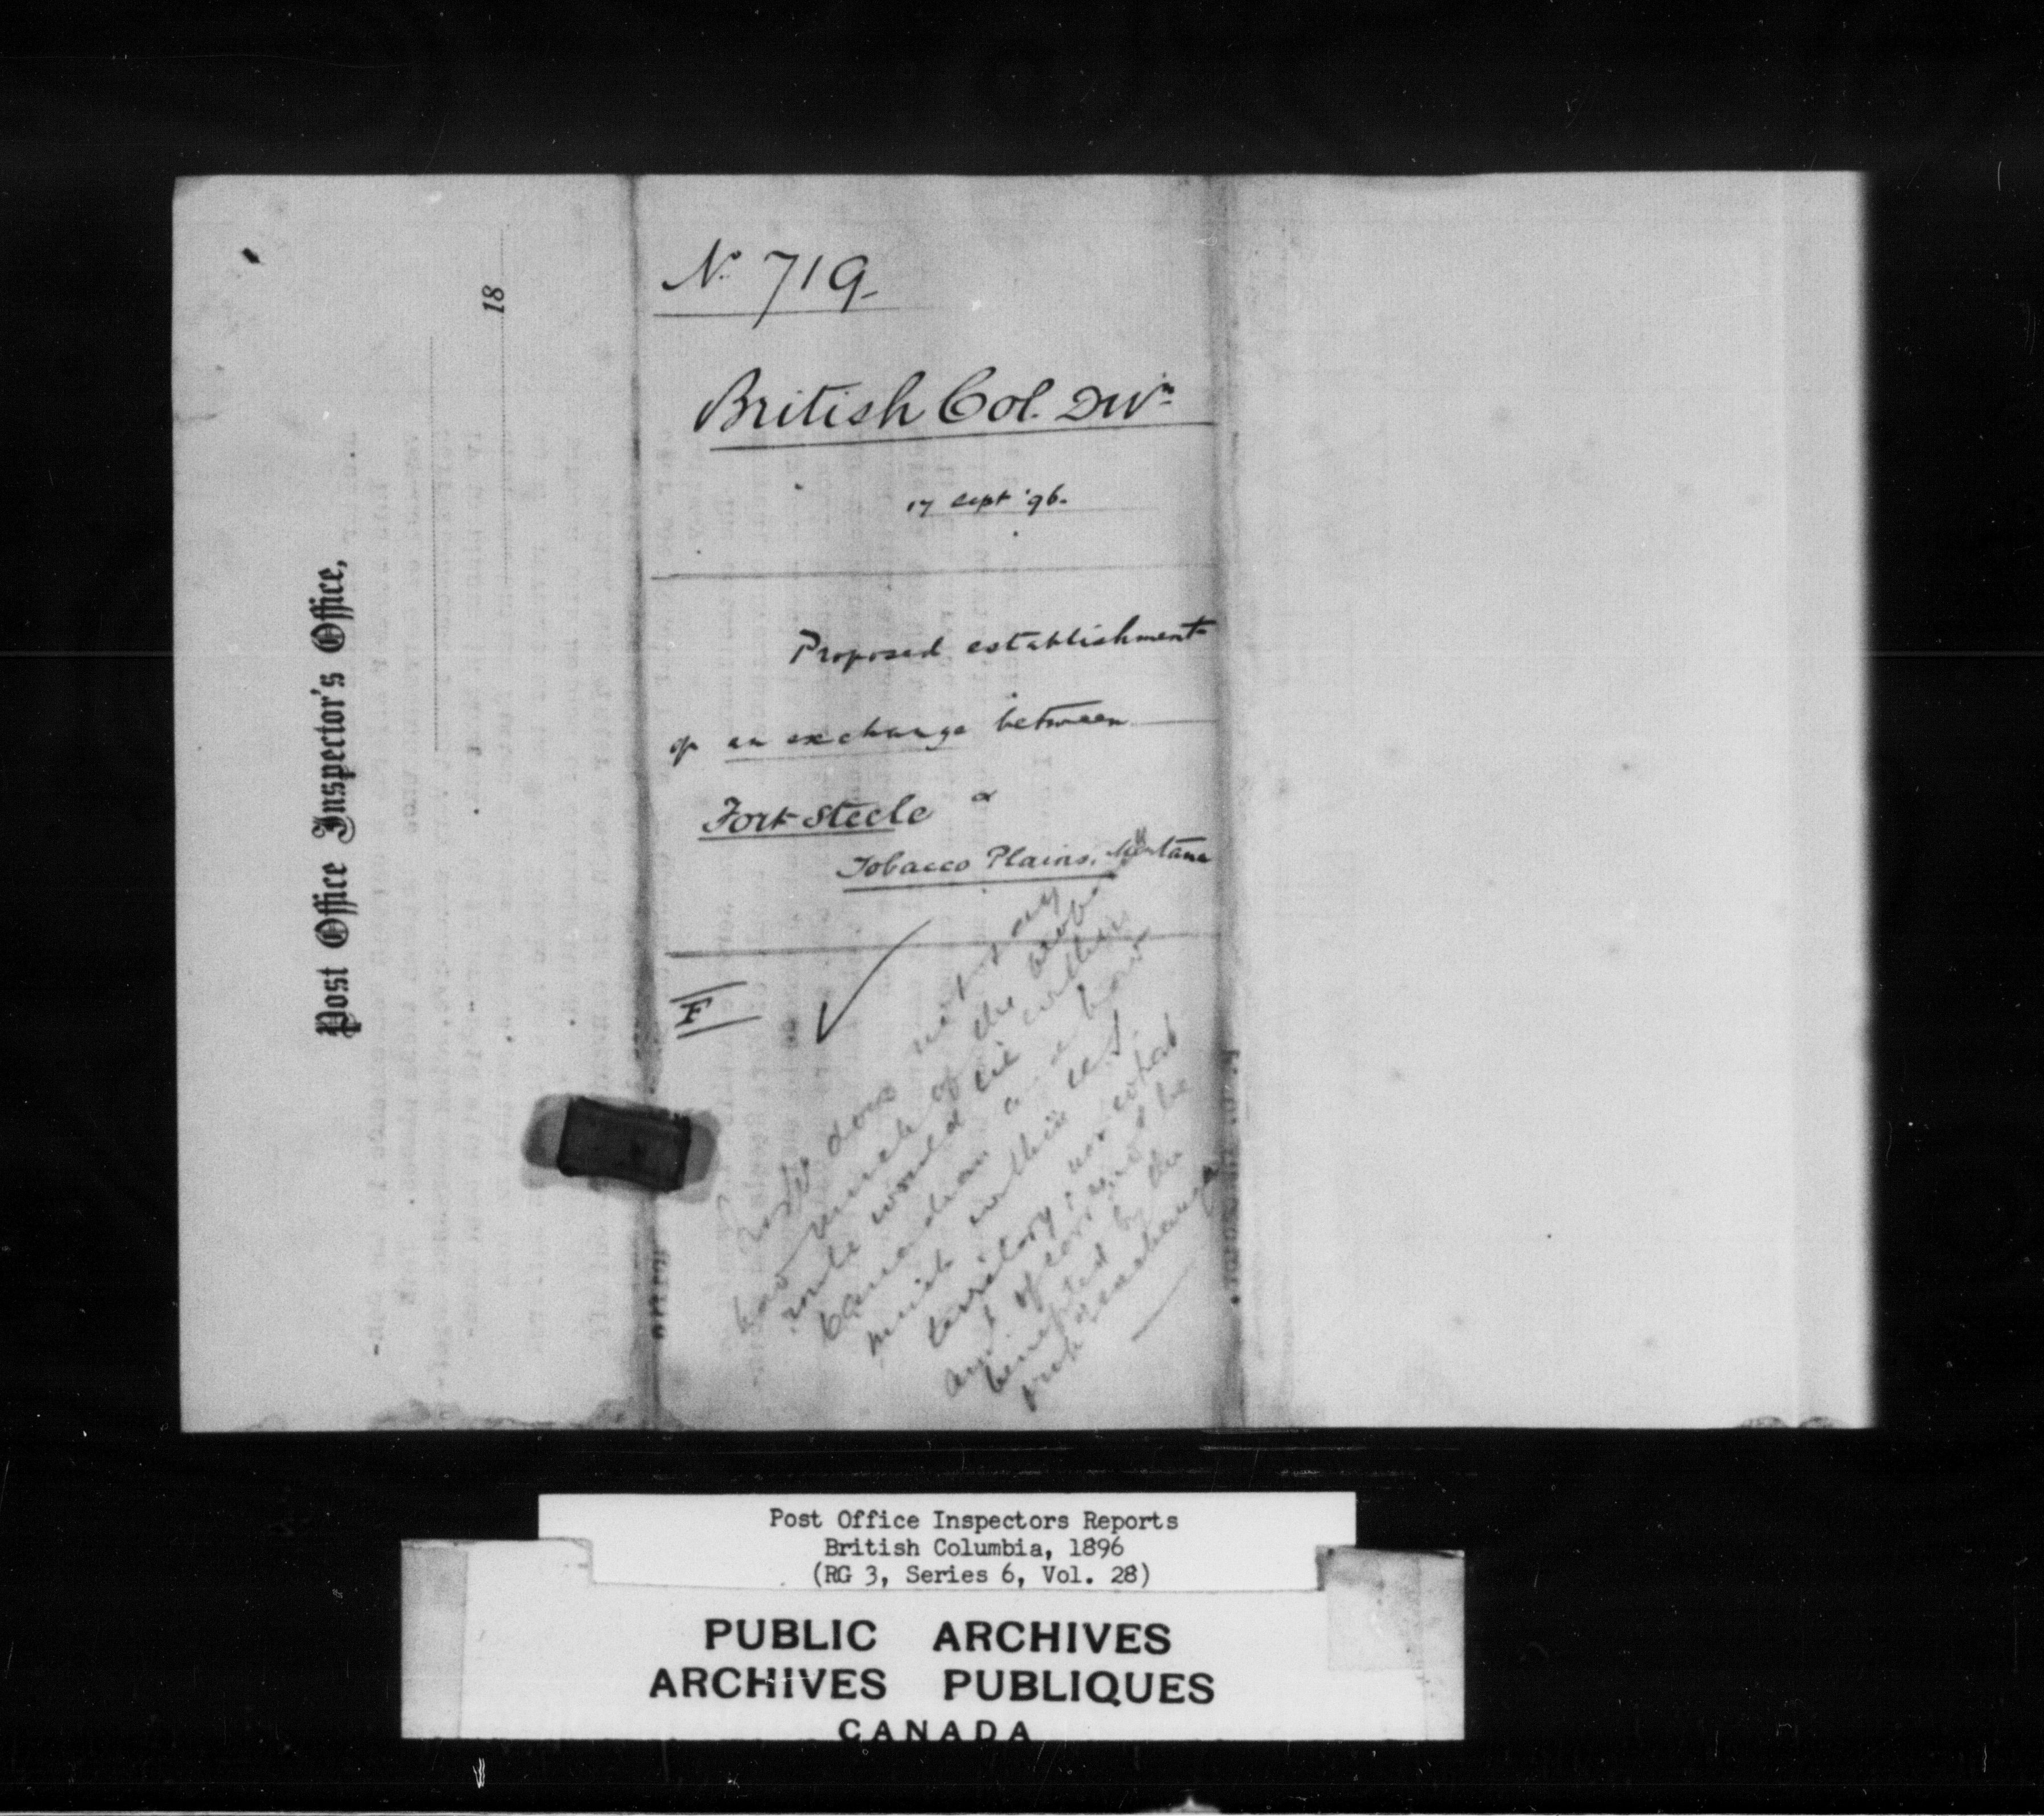 Post Office Inspector's Office,
18
No 719.
British Col. Divn
17 Sept '96.
Proposed establishment
of an exchange between
Fort Steele &
Tobacco Plains, Montana
F
does not say
how much of the
route would lie within
Canadian how
much within U.S.
territory, nor what
amt of corrspd be
benefited by the
exchange
Post Office Inspectors Reports
British Columbia, 1896
(RG 3, Series 6, Vol. 28)
PUBLIC ARCHIVES
ARCHIVES PUBLIQUES
CANADA